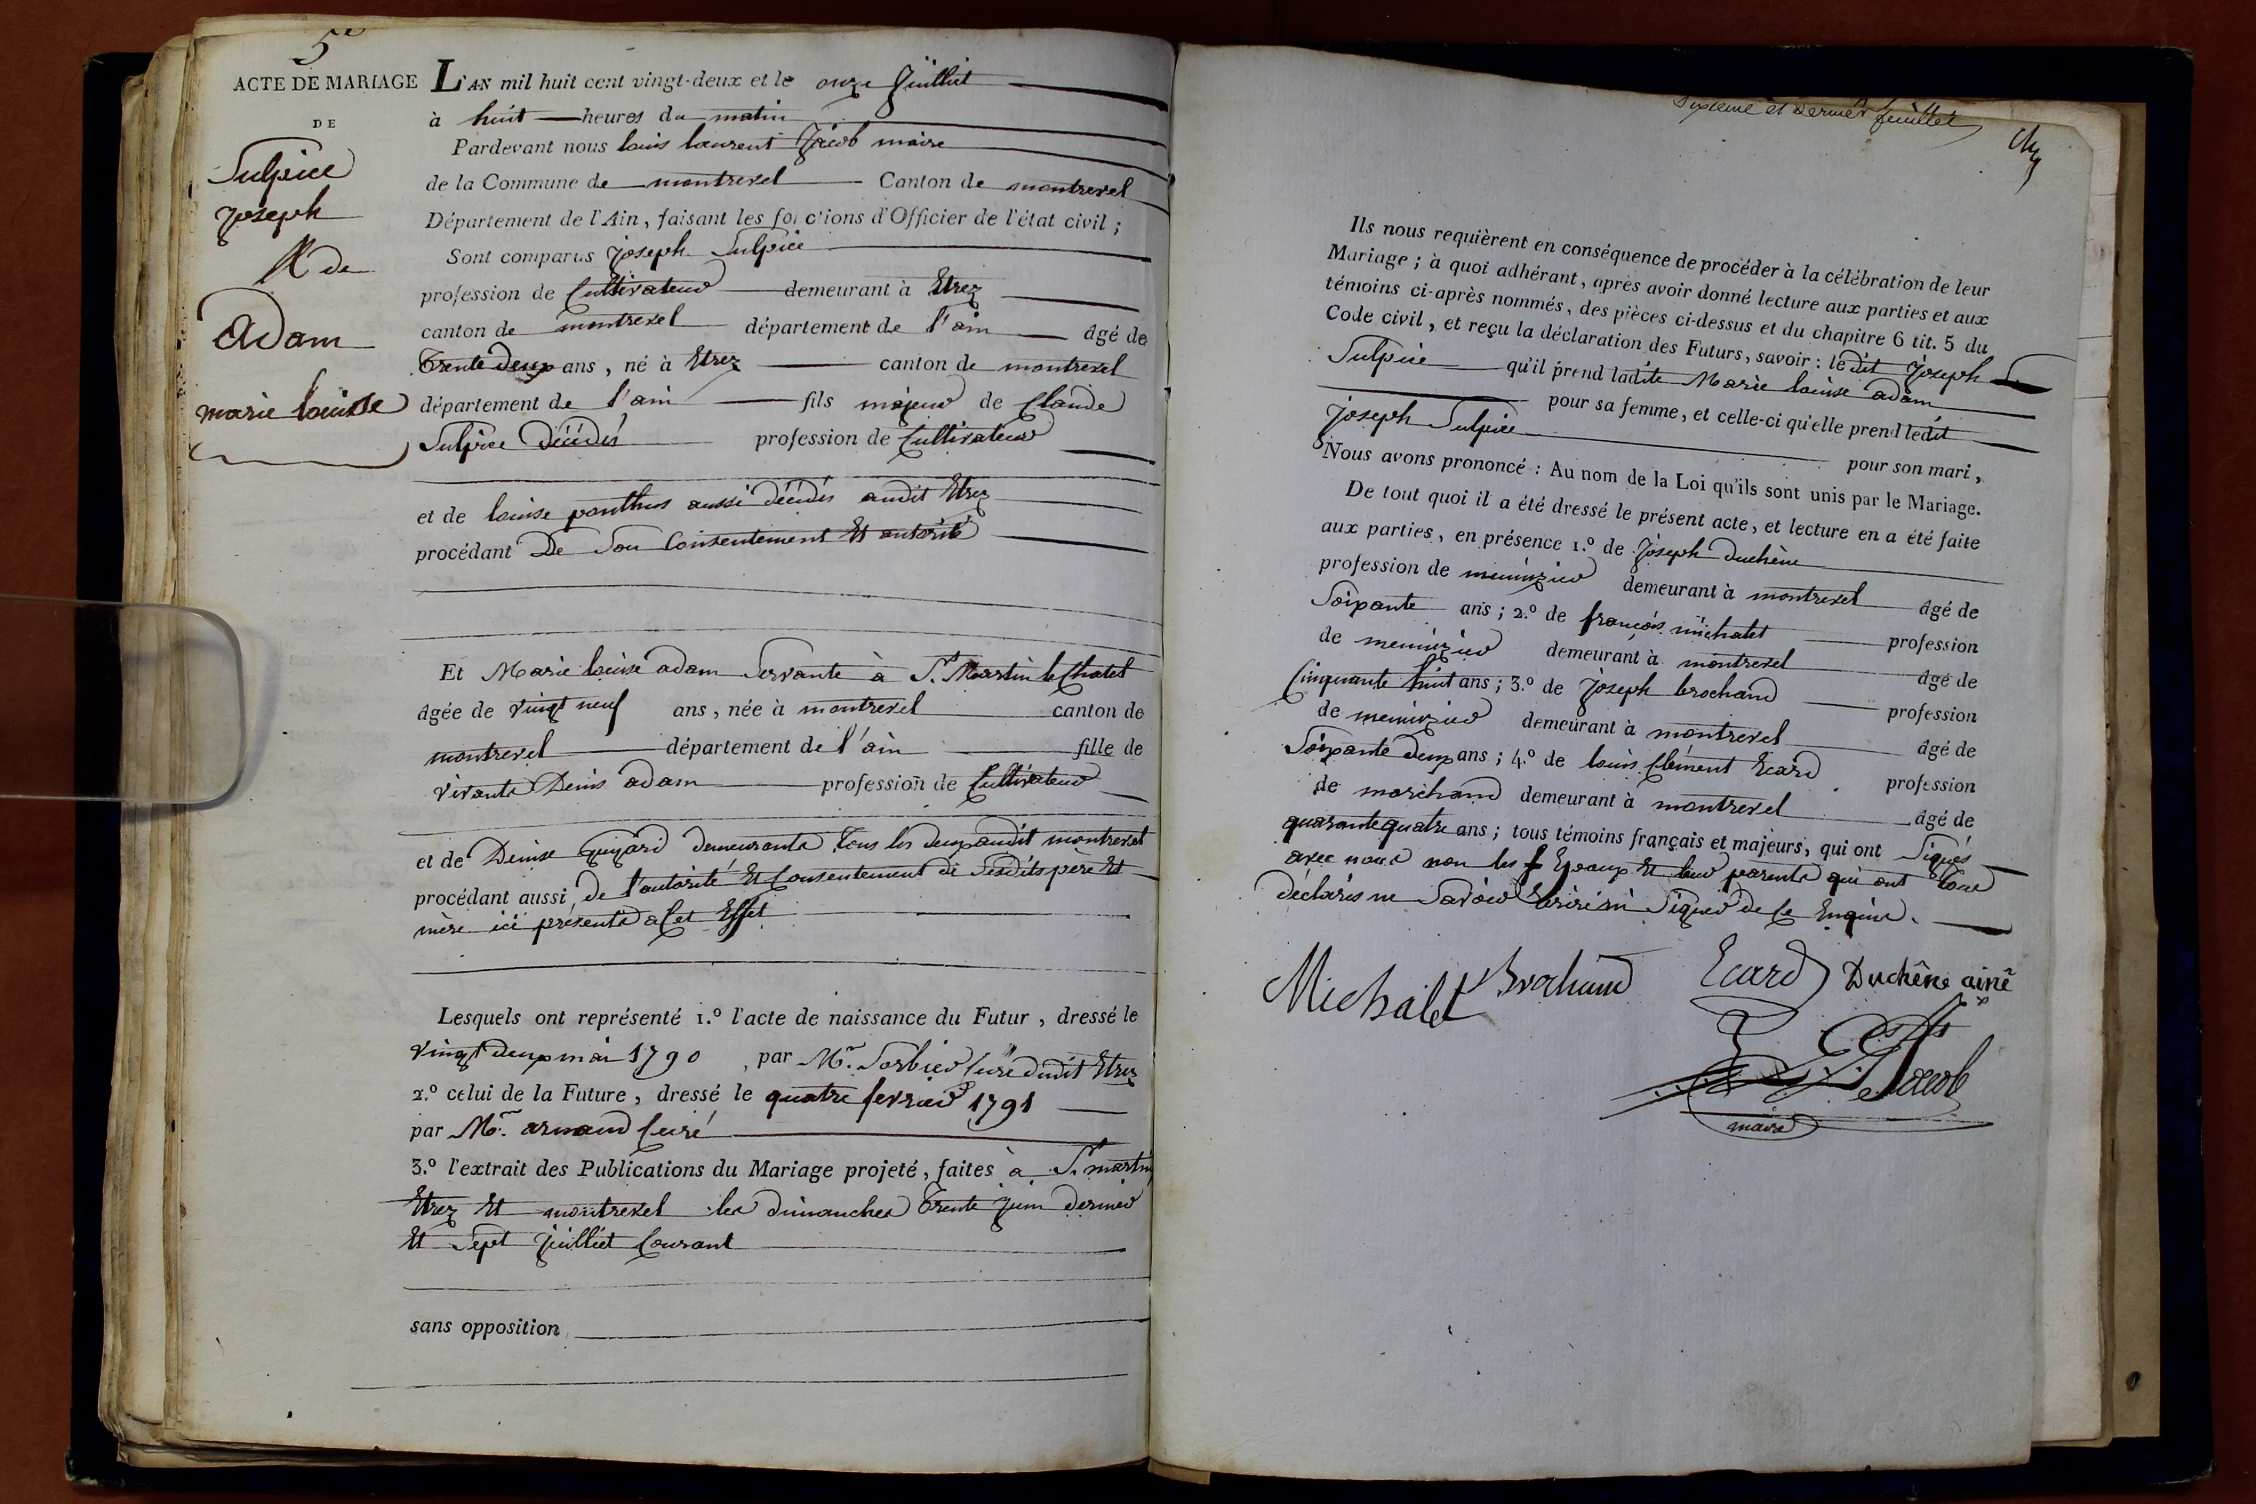 5e
ACTE DE MARIAGE
DE
Sulpice
joseph
& de
Adam
marie louise
L'AN mil huit cent vingt-deux et le onze juilliet
à huit heures du matin
Pardevant nous louis laurent Jacob maire
de la Commune de montrevel Canton de montrevel
Département de l'Ain, faisant les fonctions d'Officier de l'état civil;
Sont comparus joseph Sulpice
profession de Cultivateur demeurant à Etrez
canton de montrevel département de l'ain âgé de
trente deux ans, né à Etrez canton de montrevel
département de l'ain fils majeur de Claude
Sulpice décédés profession de Cultivateur
et de louise ponthus aussi décédés audit Etrez
procédant De Son Consentement Et autorité
Et Marie louise adam Servante à St. Martin le Chatel
âgée de vingt neuf ans, née à montrevel canton de
montrevel département de l'ain fille de
vivants Denis adam profession de Cultivateur
et de Denise guyard demeurants tous les deux audit montrevel
procédant aussi, de l'autorité Et Consentement de Sesdits père Et
mère ici présents a Cet Effet
Lesquels ont représenté 1.º l'acte de naissance du Futur, dressé le
vingt deux mai 1790, par Mr. Sorbier Curé dudit Etrez
2.º celui de la Future, dressé le quatre fevrier 1791
par Mr. armand Curé
3.º l'extrait des Publications du Mariage projeté, faites à St. martin
Etrez Et montrevel les dimanches trente juin dernier
Et Sept juilliet Courant
sans opposition
Sixieme et Dernier feuillet
Ils nous requièrent en conséquence de procéder à la célébration de leur
Mariage; à quoi adhérant, après avoir donné lecture aux parties et aux
témoins ci-après nommés, des pièces ci-dessus et du chapitre 6 tit. 5 du
Code civil, et reçu la déclaration des Futurs, savoir: ledit joseph
Sulpice qu'il prend ladite Marie louise adam
pour sa femme, et celle-ci qu'elle prend ledit
joseph Sulpice pour son mari,
Nous avons prononcé: Au nom de la Loi qu'ils sont unis par le Mariage.
De tout quoi il a été dressé le présent acte, et lecture en a été faite
aux parties, en présence 1.º de joseph duchêne
profession de menuizier demeurant à montrevel âgé de
Soixante ans; 2.º de françois michalet profession
de menuizier demeurant à montrevel âgé de
Cinquante huit ans; 3.º de joseph brochand profession
de menuizier demeurant à montrevel âgé de
Soixante deux ans; 4.º de louis Clément Ecard profession
de marchand demeurant à montrevel âgé de
quarante quatre ans; tous témoins français et majeurs, qui ont Signés
avec nous non les Epoux Et leur parents qui ont tous
déclarés ne Savoir Ecrire ni Signer de Ce Enquis.
Michalet Brochand Ecard Duchêne ainé
Jacob
maire